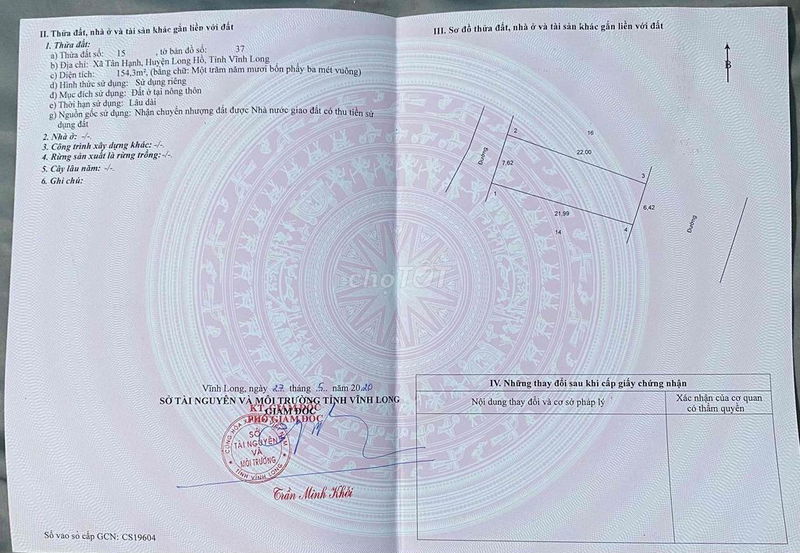 II. Thửa đất, nhà ở và tài sản khác gắn liền với đất
1. Thửa đất:
a) Thửa đất số: 15 , tờ bản đồ số: 37
b) Địa chỉ: Xã Tân Hạnh, Huyện Long Hồ, Tỉnh Vĩnh Long
c) Diện tích: 154,3m², (bằng chữ: Một trăm năm mươi bốn phẩy ba mét vuông)
d) Hình thức sử dụng: Sử dụng riêng
đ) Mục đích sử dụng: Đất ở tại nông thôn
e) Thời hạn sử dụng: Lâu dài
g) Nguồn gốc sử dụng: Nhận chuyển nhượng đất được Nhà nước giao đất có thu tiền sử
dụng đất
2. Nhà ở: -/-.
3. Công trình xây dựng khác: -/-.
4. Rừng sản xuất là rừng trồng: -/-.
5. Cây lâu năm: -/-.
6. Ghi chú:
Vĩnh Long, ngày 27 tháng 5 năm 2020
SỞ TÀI NGUYÊN VÀ MÔI TRƯỜNG TỈNH VĨNH LONG
KT. GIÁM ĐỐC
GIÁM ĐỐC
PHÓ GIÁM ĐỐC
SỞ
TÀI NGUYÊN
VÀ
MÔI TRƯỜNG
TỈNH VĨNH LONG
Trần Minh Khởi
Số vào sổ cấp GCN: CS19604
III. Sơ đồ thửa đất, nhà ở và tài sản khác gắn liền với đất
B
16
2
22,00
Đường
7,62
3
1
6,42
21,99
4
14
Đường
chợTỐT
IV. Những thay đổi sau khi cấp giấy chứng nhận
Nội dung thay đổi và cơ sở pháp lý
Xác nhận của cơ quan
có thẩm quyền